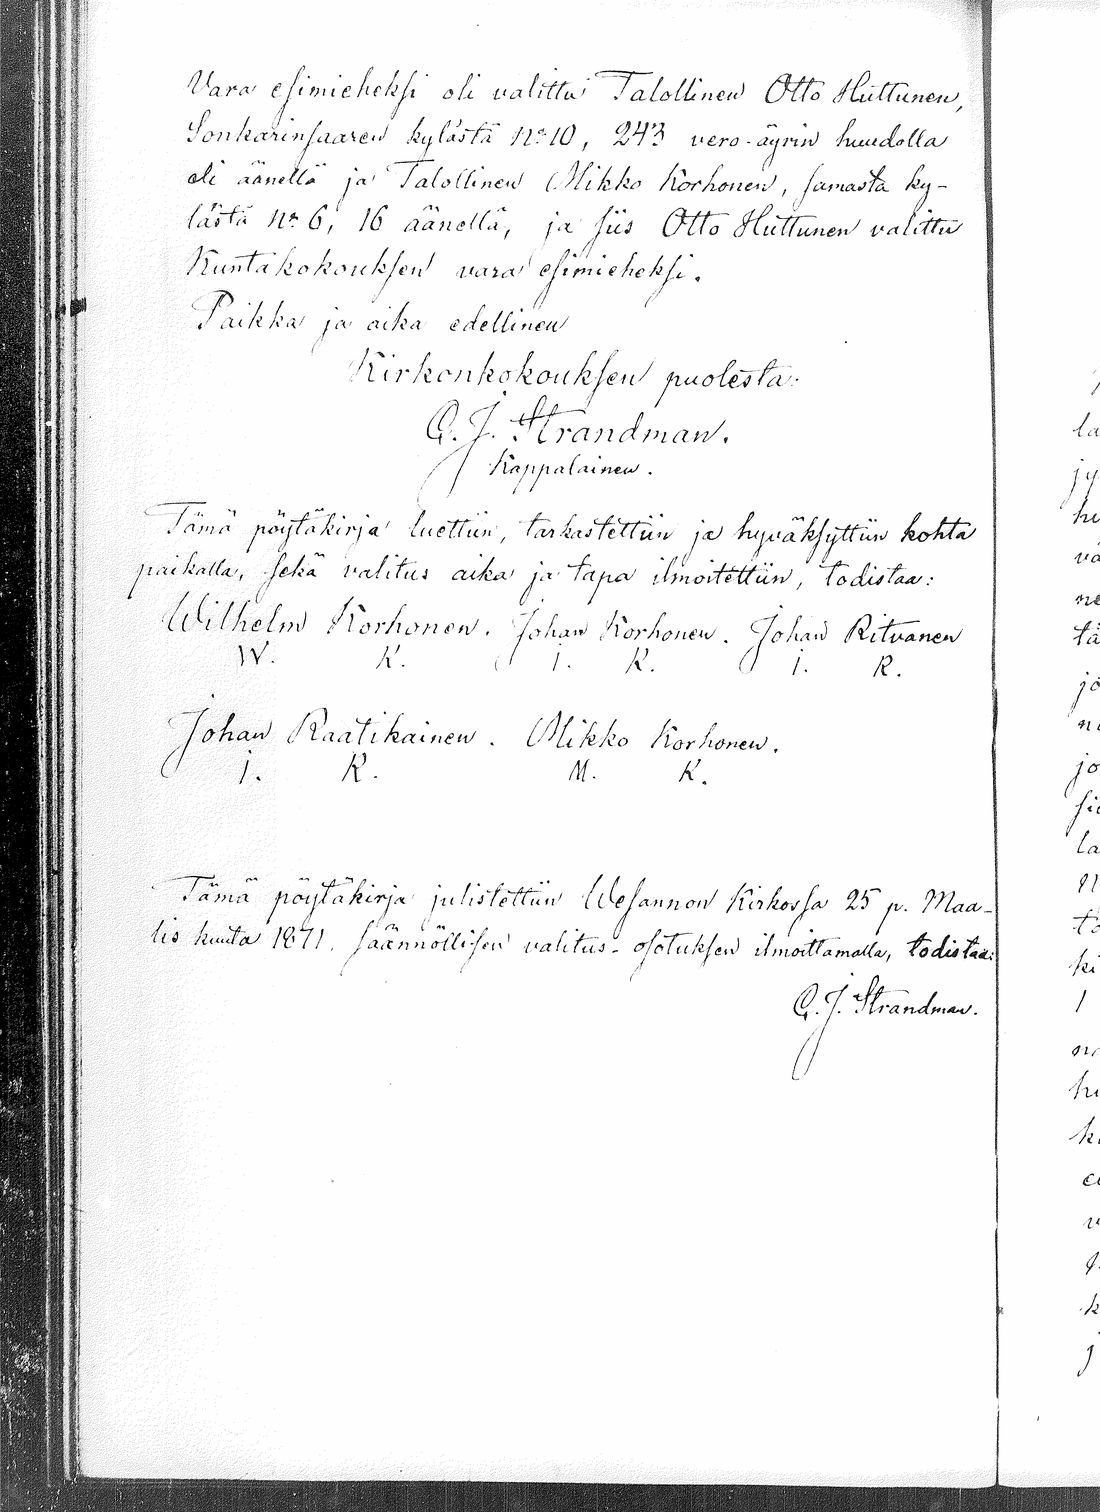 Vara esimieheksi oli valittu Talollinen Otto Huttunen,
Sonkarinsaaren kylästä No 10, 243 vero-äyrin huudolla
eli äänellä ja Talollinen Mikko Korhonen, samasta ky-
lästä No 6, 16 äänellä, ja siis Otto Huttunen valittu
Kuntakokouksen vara esimieheksi.
Paikka ja aika edellinen
Kirkonkokouksen puolesta:
G. J. Strandman.
Kappalainen.
Tämä pöytäkirja luettiin, tarkastettiin ja hyväksyttiin kohta
paikalla, sekä valitus aika ja tapa ilmoitettiin, todistaa:
Wilhelm Korhonen. Johan Korhonen. Johan Ritvanen
W. K. I. K. I. R.
Johan Raatikainen. Mikko Korhonen.
I. R. M. K.
Tämä pöytäkirja julistettiin Wesannon Kirkossa 25 p. Maa-
lis kuuta 1871. säännöllisen valitus-osotuksen ilmoittamalla, todistaa:
G. J. Strandman.